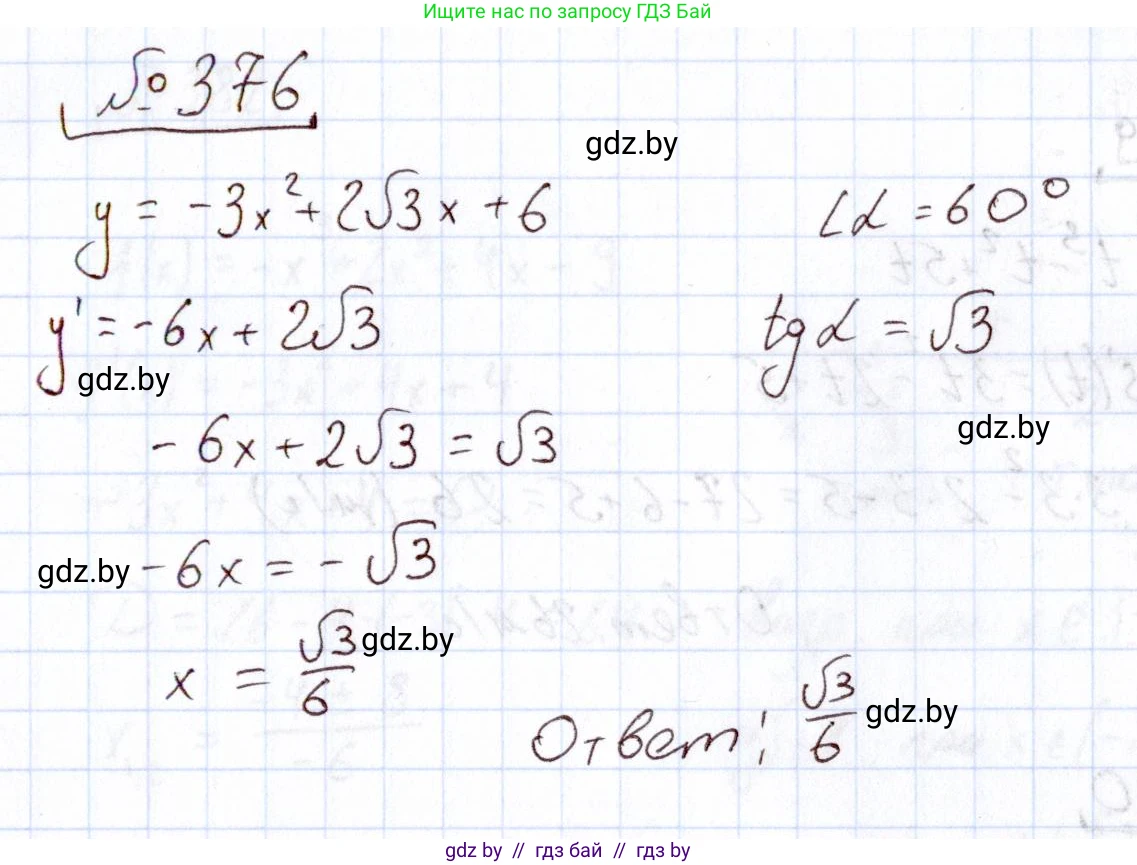 Ищите нас по запросу ГДЗ Бай
№ 376
gdz.by
y = -3x² + 2√3x + 6
∠α = 60°
y' = -6x + 2√3
tgα = √3
gdz.by
gdz.by
-6x + 2√3 = √3
gdz.by
-6x = -√3
x = √3/6
gdz.by
Ответ: √3/6
gdz.by
gdz by // гдз бай // гдз by